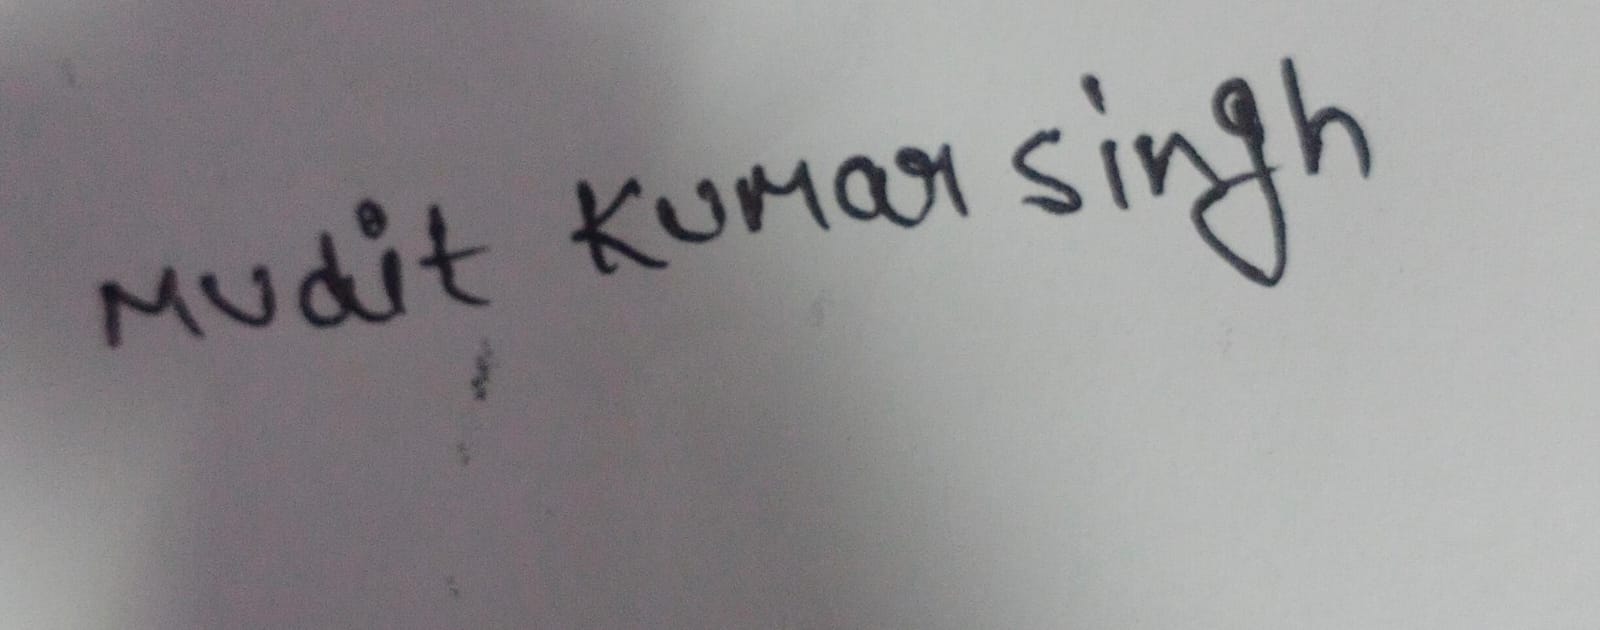 Mudit Kumar singh